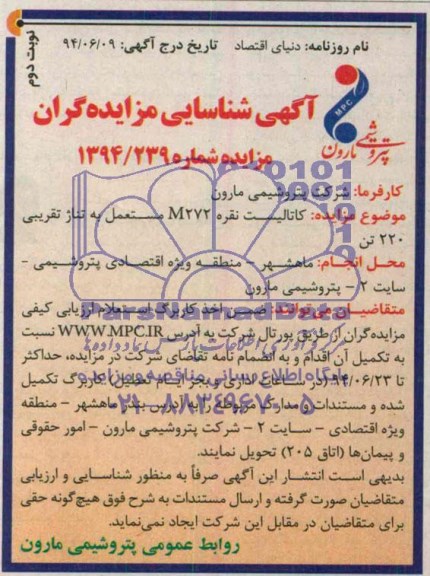 نوبت دوم
نام روزنامه: دنیای اقتصاد تاریخ درج آگهی: ۹۴/۰۶/۰۹
MPC
پتروشیمی مارون
آگهی شناسایی مزایده‌گران
مزایده شماره ۱۳۹۴/۲۳۹
کارفرما: شرکت پتروشیمی مارون
موضوع مزایده: کاتالیست نقره M۲۷۲ مستعمل به تناژ تقریبی
۲۲۰ تن
محل انجام: ماهشهر - منطقه ویژه اقتصادی پتروشیمی -
سایت ۲ - پتروشیمی مارون
متقاضیان می‌توانند: ضمن اخذ کاربرگ استعلام ارزیابی کیفی
مزایده‌گران از طریق پورتال شرکت به آدرس WWW.MPC.IR نسبت
به تکمیل آن اقدام و به انضمام نامه تقاضای شرکت در مزایده، حداکثر
تا ۹۴/۰۶/۲۳ (در ساعات اداری و بجز ایام تعطیل) کاربرگ تکمیل
شده و مستندات و مدارک مربوطه را به آدرس بندر ماهشهر - منطقه
ویژه اقتصادی - سایت ۲ - شرکت پتروشیمی مارون - امور حقوقی
و پیمان‌ها (اتاق ۲۰۵) تحویل نمایند.
بدیهی است انتشار این آگهی صرفاً به منظور شناسایی و ارزیابی
متقاضیان صورت گرفته و ارسال مستندات به شرح فوق هیچ‌گونه حقی
برای متقاضیان در مقابل این شرکت ایجاد نمی‌نماید.
روابط عمومی پتروشیمی مارون
پایگاه اطلاع رسانی مناقصه و مزایده
۰۲۱-۸۸۳۴۹۶۷۰-۵